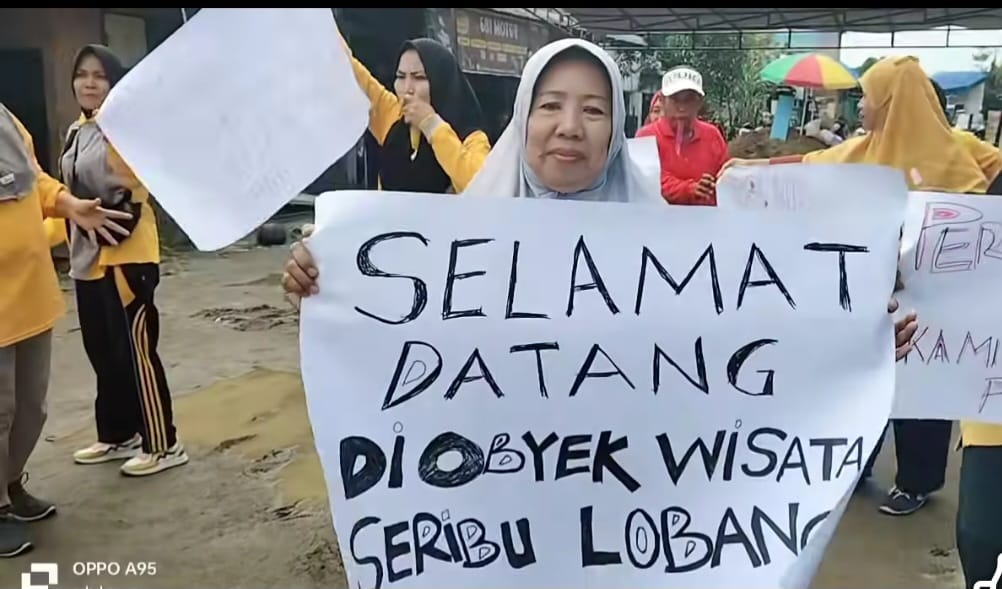 SELAMAT
DATANG
DI OBYEK WISATA
SERIBU LOBANG
PER
KAMI
OPPO A95